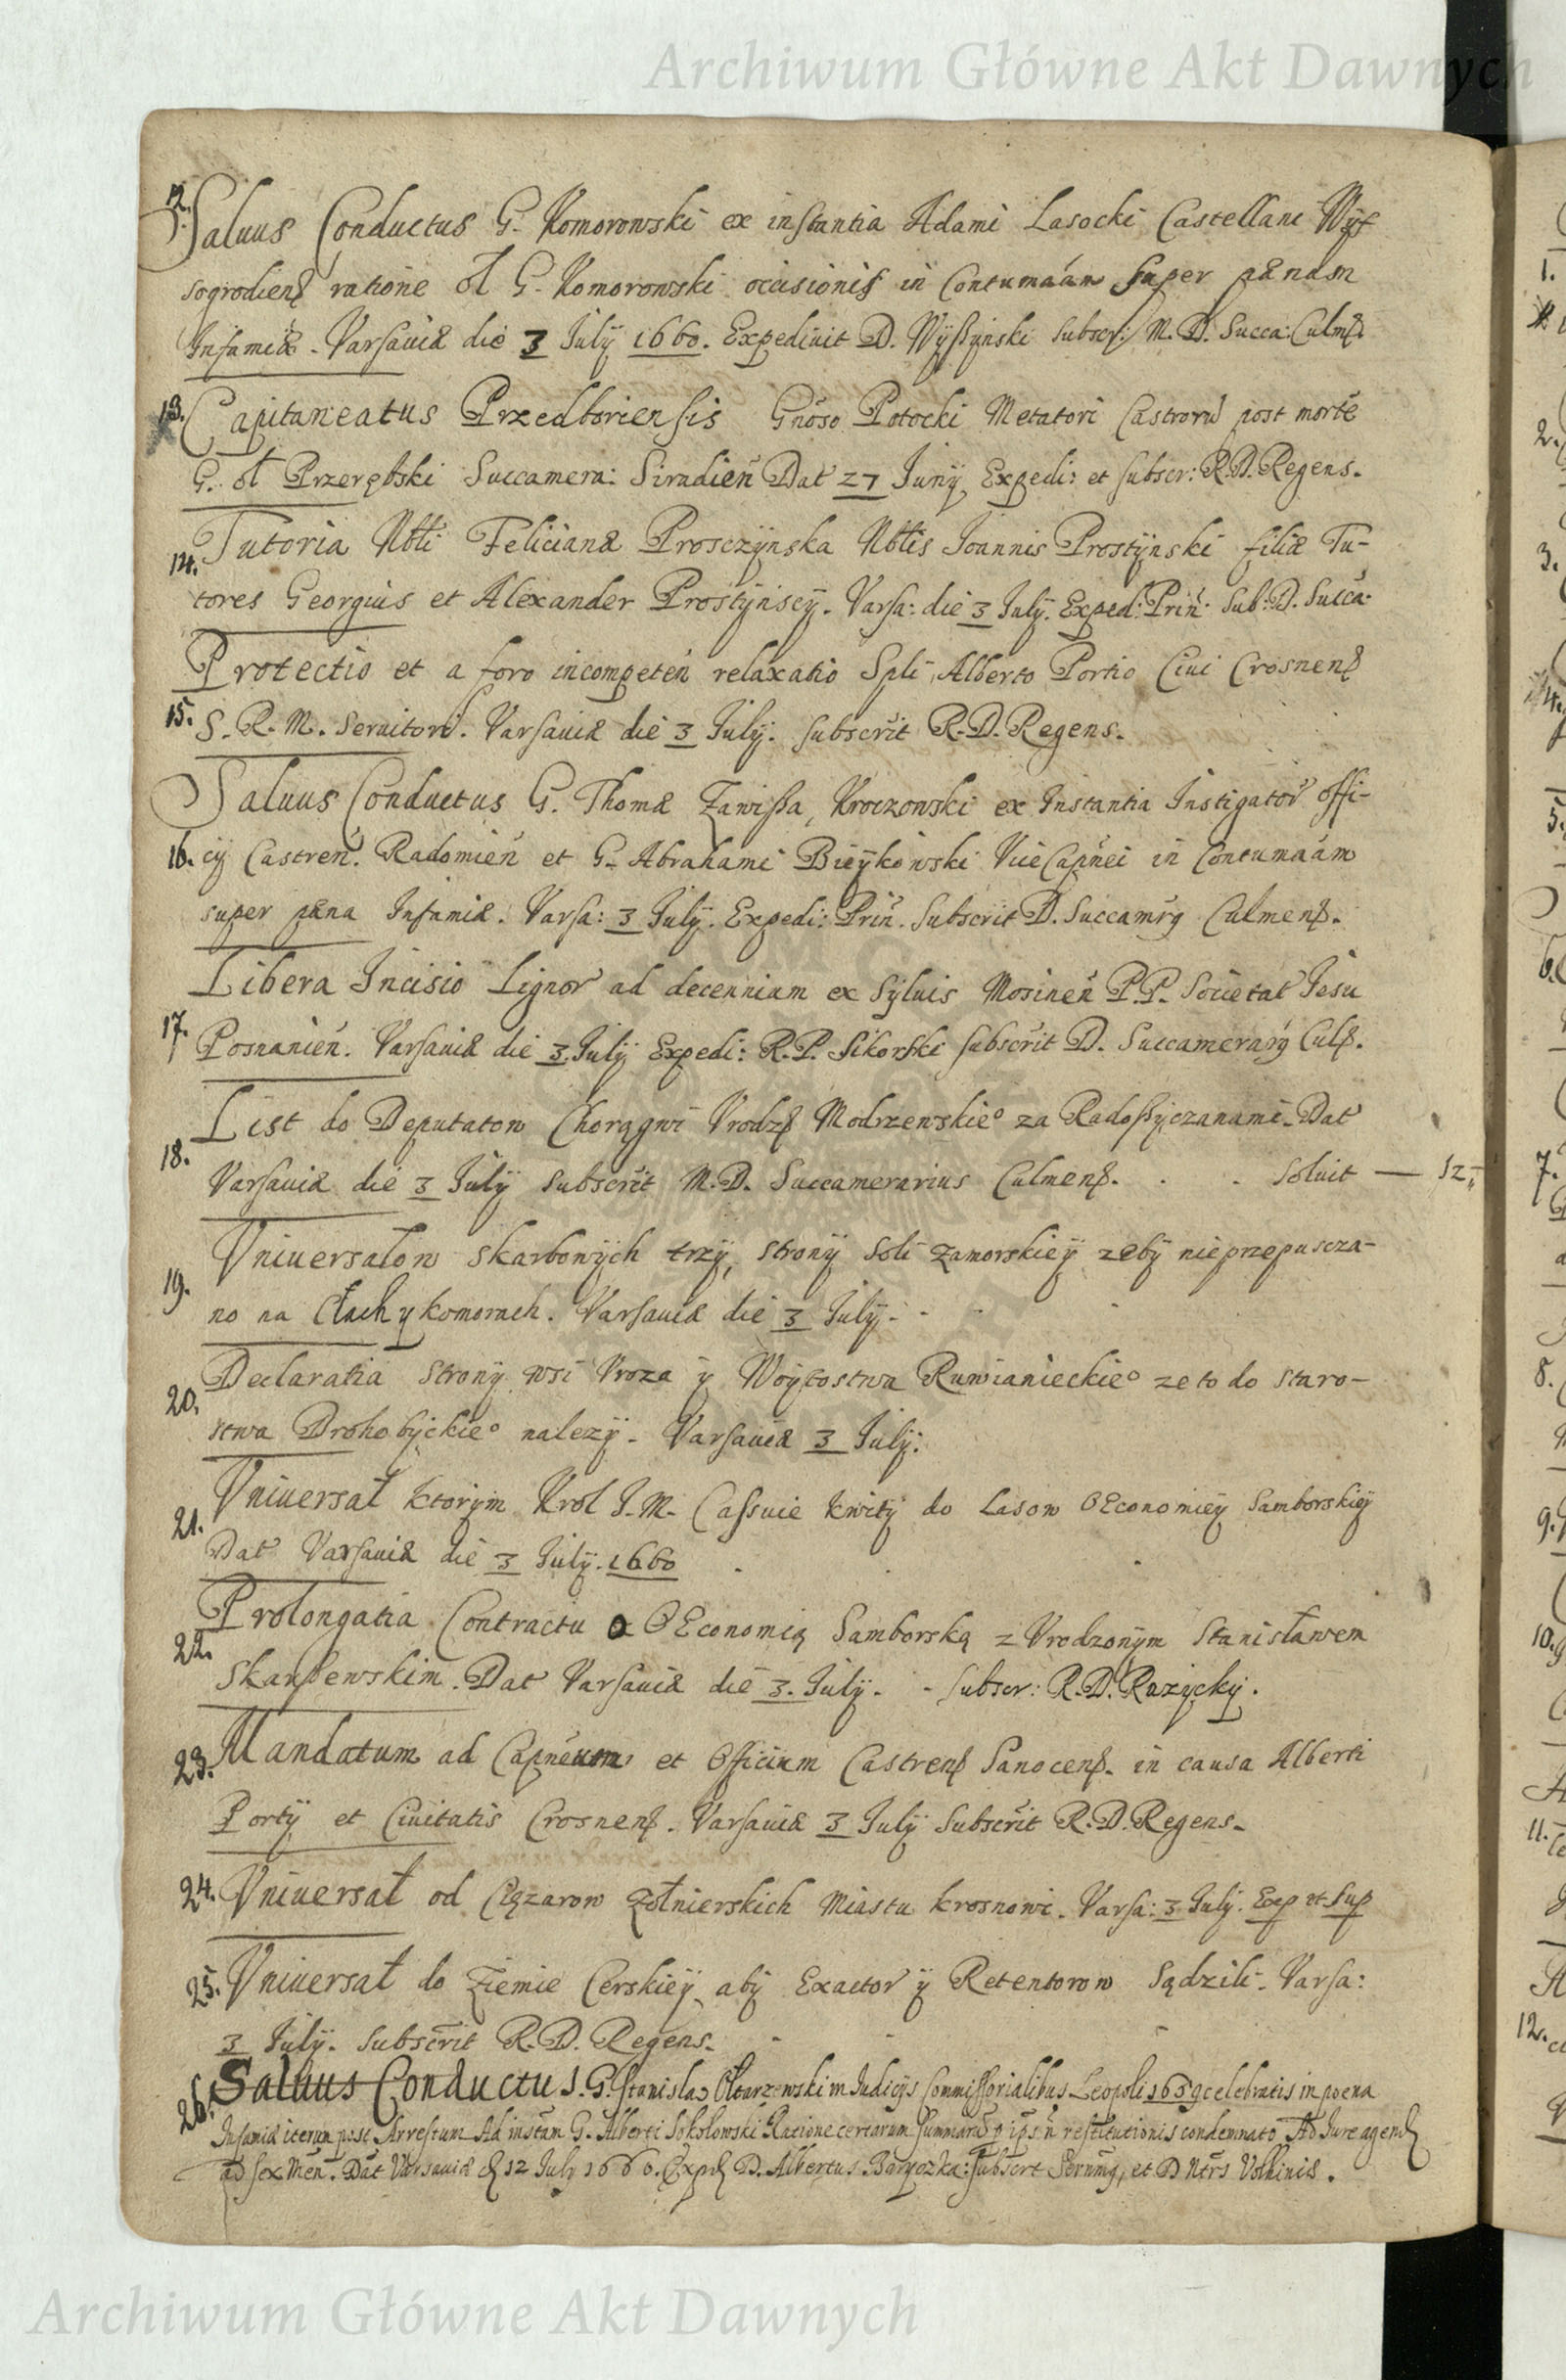 Archiwum Główne Akt Dawnych
12. Saluus Conductus G. Komorowski ex instantia Adami Lasocki Castellani Wys
sogrodienß ratione ol G. Komorowski occisionis in Contumaam super paenam
Infamiae. Varsauiae die 3 July 1660. Expediuit D. Wyßynski subscr: M. D. Succa: Culmß.
13. Capitaneatus Przedboriensis Gnoso Potocki Metatori Castroru post morte
G. ol Przerębski Succamera: Siradien Dat 27 Juny, Expedi: et subscr: R. D. Regens.
Tutoria Nbli Felicianae Prosczynska Nblis Joannis Prostynski filiae Tu-
14. tores Georgius et Alexander Prostynscy. Varsa: die 3 July. Exped: Prin: Sub: D. Succa:
Protectio et a foro incompeten relaxatio Spli Alberto Portio Ciui Crosnenß
15. S. R. M. Seruitori. Varsauiae die 3 July. subscrit R. D. Regens.
Saluus Conductus G. Thomae Zawißa, Kroczowski ex Instantia Instigator offi-
16. cij Castren. Radomien et G. Abrahami Bieykowski ViceCapnei in Contumaam
super paena Infamiae. Varsa: 3 July. Expedi: Prin. Subscrit D. Succamrg Culmenß.
Libera Incisio Lignor ad decennium ex syluis Mosinen P. P. Societat Jesu
17. Posnanien. Varsauiae die 3. July Expedi: R. P. Sikorski subscrit D. Succamerary Culß.
List do Deputatow Chorągwi Vrodzß Modrzewskieo za Radoßyczanami. Dat
18. Varsauiae die 3 July subscrit M. D. Succamerarius Culmenß. Soluit — 12
Vniuersałow skarbowych trzy, strony soli zamorskiey zeby nieprzepuscza-
19. no na Cłach y komorach. Varsauiae die 3 July.
Declaratia strony wsi Vroza y Woytostwa Rumianieckieo ze to do staro-
20. stwa Drohobyckieo nalezy. Varsauiae 3 July.
Vniuersał ktorym Krol J. M. Cassuie kwity do Lasow OEconomiey Samborskiey
21. Dat Varsauiae die 3 July. 1660
Prolongatia Contractu o OEconomią Samborską z Vrodzonym Stanisławem
22. Skarßewskim. Dat Varsauiae die 3. July. - subscr: R. D. Razycky.
23. Mandatum ad Capneum et Officium Castrenß Sanocenß. in causa Alberti
Porty et Ciuitatis Crosnenß. Varsauiae 3 July Subscrit R. D. Regens.
24. Vniuersał od Cięzarow zołnierskich Miastu krosnowi. Varsa: 3 July. Exp ut Sup
25. Vniuersał do Ziemie Cerskiey, aby Exactor y Retentorow sądzili. Varsa:
3 July. Subscrit R. D. Regens.
26. Saluus Conductus. G. Stanislao Ołtarzewski in Judicijs Commissorialibus Leopoli 1659 celebratis in poena
Infamiae iterum post Arrestum Ad instam G. Alberti Sokołowski Ratione certarum summaru p ips n restitutionis condemnato Ad Jure agend
ad sex Men. Dat Varsauiae d 12 July 1660. Exped D. Albertus Baryczka: subscrt Serning, et D. Ntrs Volhinis.
Archiwum Główne Akt Dawnych